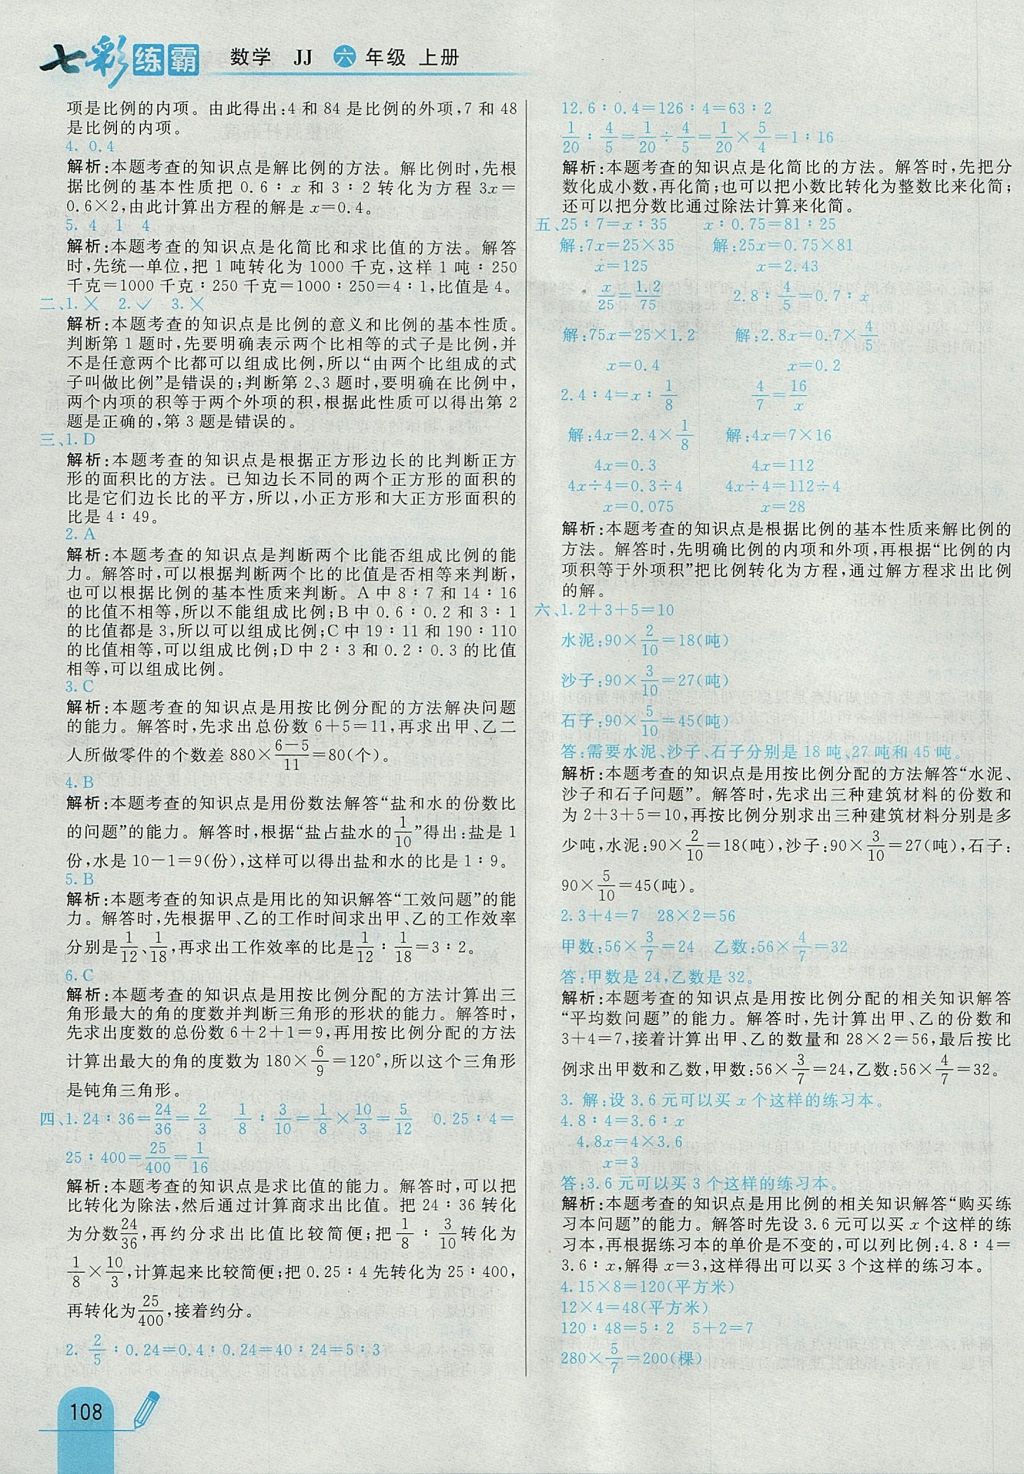 七彩练霸 数学 JJ 六年级 上册
项是比例的内项。由此得出:4 和 84 是比例的外项,7 和 48
是比例的内项。
4. 0.4
解析:本题考查的知识点是解比例的方法。解比例时,先根
据比例的基本性质把 0.6∶x 和 3∶2 转化为方程 3x=
0.6×2,由此计算出方程的解是 x=0.4。
5. 4 1 4
解析:本题考查的知识点是化简比和求比值的方法。解答
时,先统一单位,把 1 吨转化为 1000 千克,这样 1 吨∶250
千克=1000 千克∶250 千克=1000∶250=4∶1,比值是 4。
二、1.× 2.✓ 3.×
解析:本题考查的知识点是比例的意义和比例的基本性质。
判断第 1 题时,先要明确表示两个比相等的式子是比例,并
不是任意两个比都可以组成比例,所以“由两个比组成的式
子叫做比例”是错误的;判断第 2、3 题时,要明确在比例中,
两个内项的积等于两个外项的积,根据此性质可以得出第 2
题是正确的,第 3 题是错误的。
三、1.D
解析:本题考查的知识点是根据正方形边长的比判断正方
形的面积比的方法。已知边长不同的两个正方形的面积的
比是它们边长比的平方,所以,小正方形和大正方形面积的
比是 4∶49。
2.A
解析:本题考查的知识点是判断两个比能否组成比例的能
力。解答时,可以根据判断两个比的比值是否相等来判断,
也可以根据比例的基本性质来判断。A 中 8∶7 和 14∶16
的比值不相等,所以不能组成比例;B 中 0.6∶0.2 和 3∶1
的比值都是 3,所以可以组成比例;C 中 19∶11 和 190∶110
的比值相等,可以组成比例;D 中 2∶3 和 0.2∶0.3 的比值
相等,可以组成比例。
3.C
解析:本题考查的知识点是用按比例分配的方法解决问题
的能力。解答时,先求出总份数 6+5=11,再求出甲、乙二
人所做零件的个数差 880×(6-5)/11=80(个)。
4.B
解析:本题考查的知识点是用份数法解答“盐和水的份数比
的问题”的能力。解答时,根据“盐占盐水的1/10”得出:盐是 1
份,水是 10-1=9(份),这样可以得出盐和水的比是 1∶9。
5.B
解析:本题考查的知识点是用比的知识解答“工效问题”的能
力。解答时,先根据甲、乙的工作时间求出甲、乙的工作效率
分别是1/12、1/18,再求出工作效率的比是1/12∶1/18=3∶2。
6.C
解析:本题考查的知识点是用按比例分配的方法计算出三
角形最大的角的度数并判断三角形的形状的能力。解答时,
先求出度数的总份数 6+2+1=9,再用按比例分配的方法
计算出最大的角的度数为 180×6/9=120°,所以这个三角形
是钝角三角形。
四、1.24∶36=24/36=2/3 1/8∶3/10=1/8×10/3=5/12 0.25∶4=
25∶400=25/400=1/16
解析:本题考查的知识点是求比值的能力。解答时,可以把
比转化为除法,然后通过计算商求出比值。把 24∶36 转化
为分数24/36,再约分求出比值比较简便;把1/8∶3/10转化为
1/8×10/3,计算起来比较简便;把 0.25∶4 先转化为 25∶400,
再转化为25/400,接着约分。
2. 2/5∶0.24=0.4∶0.24=40∶24=5∶3
12.6∶0.4=126∶4=63∶2
1/20∶4/5=1/20÷4/5=1/20×5/4=1∶16
解析:本题考查的知识点是化简比的方法。解答时,先把分
数化成小数,再化简;也可以把小数比转化为整数比来化简;
还可以把分数比通过除法计算来化简。
五、25∶7=x∶35 x∶0.75=81∶25
解:7x=25×35 解:25x=0.75×81
x=125 x=2.43
x/25=1.2/75 2.8∶4/5=0.7∶x
解:75x=25×1.2 解:2.8x=0.7×4/5
x=0.4 x=0.2
2.4∶4=x∶1/8 4/7=16/x
解:4x=2.4×1/8 解:4x=7×16
4x=0.3 4x=112
4x÷4=0.3÷4 4x÷4=112÷4
x=0.075 x=28
解析:本题考查的知识点是根据比例的基本性质来解比例的
方法。解答时,先明确比例的内项和外项,再根据“比例的内
项积等于外项积”把比例转化为方程,通过解方程求出比例
的解。
六、1.2+3+5=10
水泥:90×2/10=18(吨)
沙子:90×3/10=27(吨)
石子:90×5/10=45(吨)
答:需要水泥、沙子、石子分别是 18 吨、27吨和 45 吨。
解析:本题考查的知识点是用按比例分配的方法解答“水泥、
沙子和石子问题”。解答时,先求出三种建筑材料的份数和
为 2+3+5=10,再按比例分别求出三种建筑材料分别是多
少吨,水泥:90×2/10=18(吨),沙子:90×3/10=27(吨),石子:
90×5/10=45(吨)。
2.3+4=7 28×2=56
甲数:56×3/7=24 乙数:56×4/7=32
答:甲数是 24,乙数是 32。
解析:本题考查的知识点是用按比例分配的相关知识解答
“平均数问题”的能力。解答时,先计算出甲、乙的份数和
3+4=7,接着计算出甲、乙的数量和 28×2=56,最后按比
例求出甲数和乙数,甲数:56×3/7=24,乙数:56×4/7=32。
3. 解:设 3.6 元可以买 x 个这样的练习本。
4.8∶4=3.6∶x
4.8x=4×3.6
x=3
答:3.6 元可以买 3 个这样的练习本。
解析:本题考查的知识点是用比例的相关知识解答“购买练
习本问题”的能力。解答时先设 3.6 元可以买 x 个这样的练
习本,再根据练习本的单价是不变的,可以列比例:4.8∶4=
3.6∶x,解得 x=3,这样得出可以买 3 个这样的练习本。
4.15×8=120(平方米)
12×4=48(平方米)
120∶48=5∶2 5+2=7
280×5/7=200(棵)
108